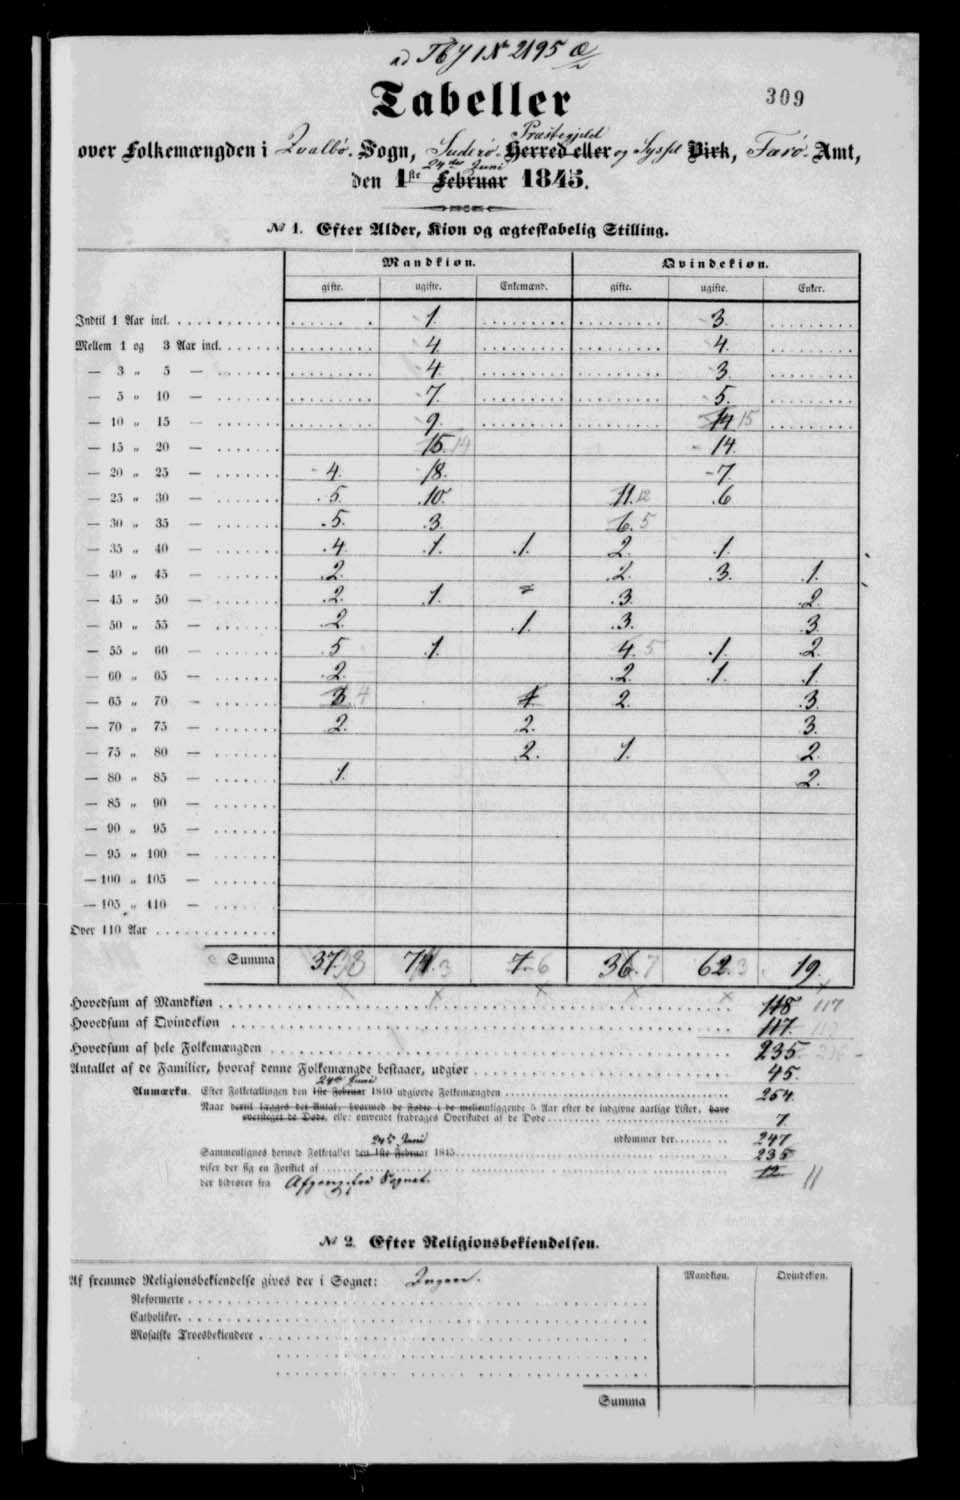 ad Tb J 1 № 2195 Æ/2
Tabeller
309
Præstegjeld
over Folkemængden i Qvalbø. Sogn, Suderø. Herred eller og Syssel Birk, Færø. Amt,
24de Juni
den 1ste Februar 1845.
№ 1. Efter Alder, Kion og ægteskabelig Stilling.
Mandkion. Qvindekion.
gifte. ugifte. Enkemænd. gifte. ugifte. Enker.
Indtil 1 Aar incl. 1. 3.
Mellem 1 og 3 Aar incl. 4. 4.
— 3 „ 5 — 4. 3.
— 5 „ 10 — 7. 5.
— 10 „ 15 — 9. 14 15
— 15 „ 20 — 15. 14 14.
— 20 „ 25 — 4. 18. 7.
— 25 „ 30 — 5. 10. 11. 12 6
— 30 „ 35 — 5. 3. 6. 5
— 35 „ 40 — 4. 1. 1. 2. 1.
— 40 „ 45 — 2. 2. 3. 1.
— 45 „ 50 — 2. 1. 3. 2.
— 50 „ 55 — 2. 1. 3. 3.
— 55 „ 60 — 5 1. 4. 5 1. 2.
— 60 „ 65 — 2. 2. 1. 1.
— 65 „ 70 — 3. 4 1. 2. 3.
— 70 „ 75 — 2. 2. 3.
— 75 „ 80 — 2. 1. 2.
— 80 „ 85 — 1. 2.
— 85 „ 90 —
— 90 „ 95 —
— 95 „ 100 —
— 100 „ 105 —
— 105 „ 110 —
Over 110 Aar
Summa 37. 8 74. 3 7. 6 36. 7 62. 3 19.
Hovedsum af Mandkion 118 117
Hovedsum af Qvindekion 117.
Hovedsum af hele Folkemængden 235
Antallet af de Familier, hvoraf denne Folkemængde bestaaer, udgiør 45.
24de Juni
Anmærkn. Efter Folketællingen den 1ste Februar 1840 udgiorde Folkemængden 254.
Naar dertil lægges det Antal, hvormed de Fødte i de mellemliggende 5 Aar efter de indgivne aarlige Lister, have
oversteget de Døde, eller omvendt fradrages Overskudet af de Døde 7.
udkommer der 247
24de Juni
Sammenlignes hermed Folketallet den 1ste Februar 1845 235
viser der sig en Forskiel af 12. 11
der hidrører fra Afgang fra Sognet.
№ 2. Efter Religionsbekiendelsen.
Af fremmed Religionsbekiendelse gives der i Sognet: Ingen. Mandkion. Qvindekion.
Reformerte
Catholiker
Mosaiske Troesbekiendere
Summa